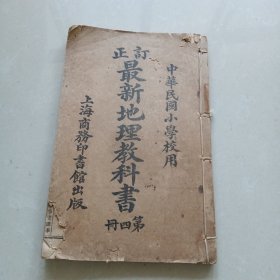 中華民國小學校用
訂正
最新地理教科書
第四冊
上海商務印書館出版